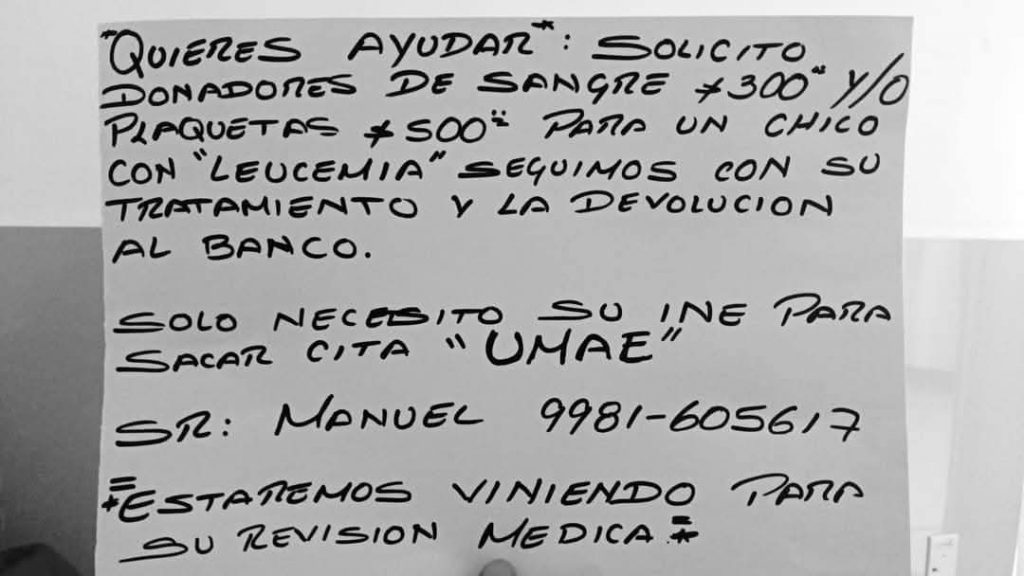 *QUIERES AYUDAR*: SOLICITO
DONADORES DE SANGRE $300" Y/O
PLAQUETAS $500" PARA UN CHICO
CON "LEUCEMIA" SEGUIMOS CON SU
TRATAMIENTO Y LA DEVOLUCION
AL BANCO.
SOLO NECESITO SU INE PARA
SACAR CITA "UMAE"
SR: MANUEL 9981-605617
*ESTAREMOS VINIENDO PARA
SU REVISION MEDICA.*